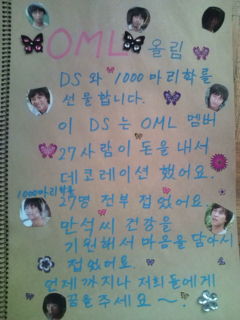 OML 올림
DS와 1000마리학를
선물합니다.
이 DS는 OML 멤버
27사람이 돈을 내서
데코레이션 했어요.
1000마리학를
27명 전부 접었어요.
만석씨 건강을
기원해서 마음을 담아서
접었어요.
언제까지나 저희들에게
꿈을주세요~.